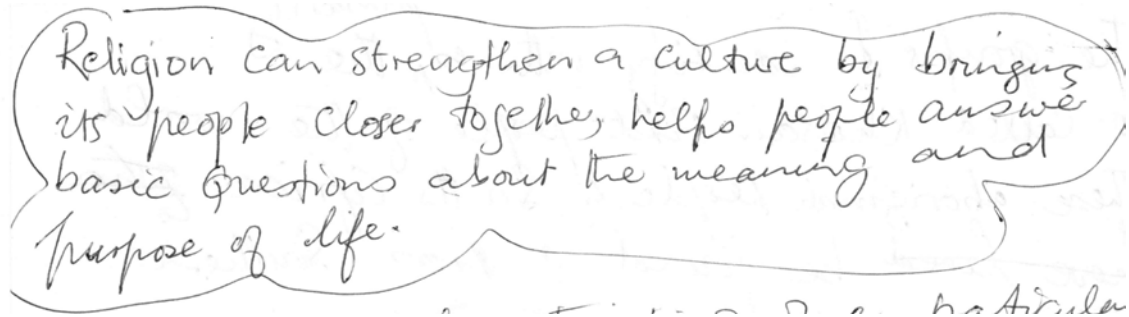 Religion can strengthen a culture by bringing
its people closer together, helps people answer
basic questions about the meaning and
purpose of life.
particular